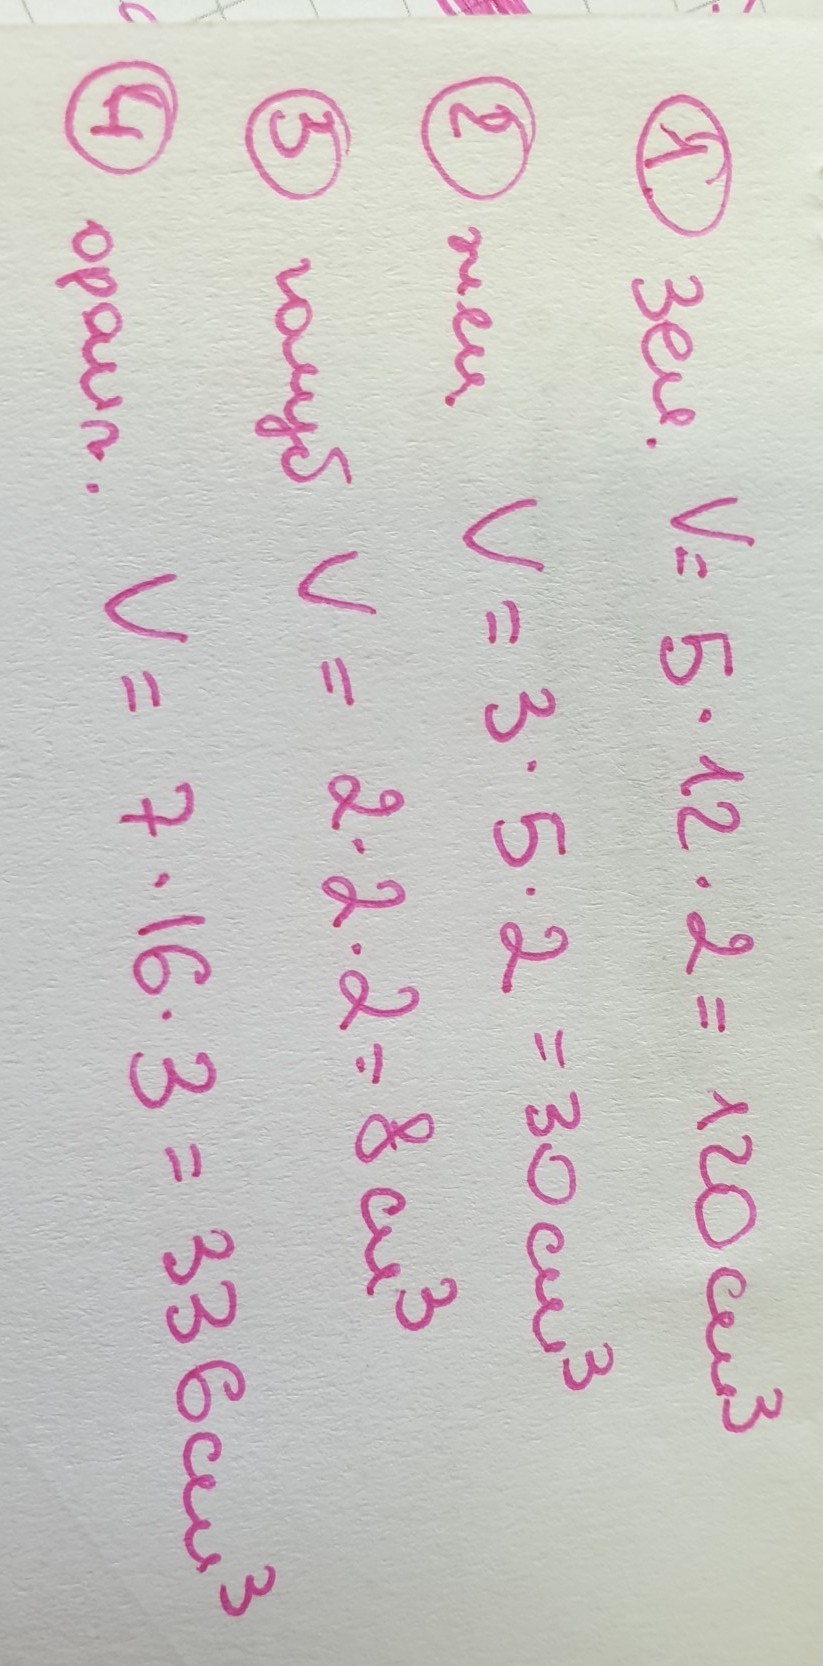 1. зел. V = 5 · 12 · 2 = 120 см³
2 жел. V = 3 · 5 · 2 = 30 см³
3 голуб V = 2 · 2 · 2 = 8 см³
4 оранж. V = 7 · 16 · 3 = 336 см³